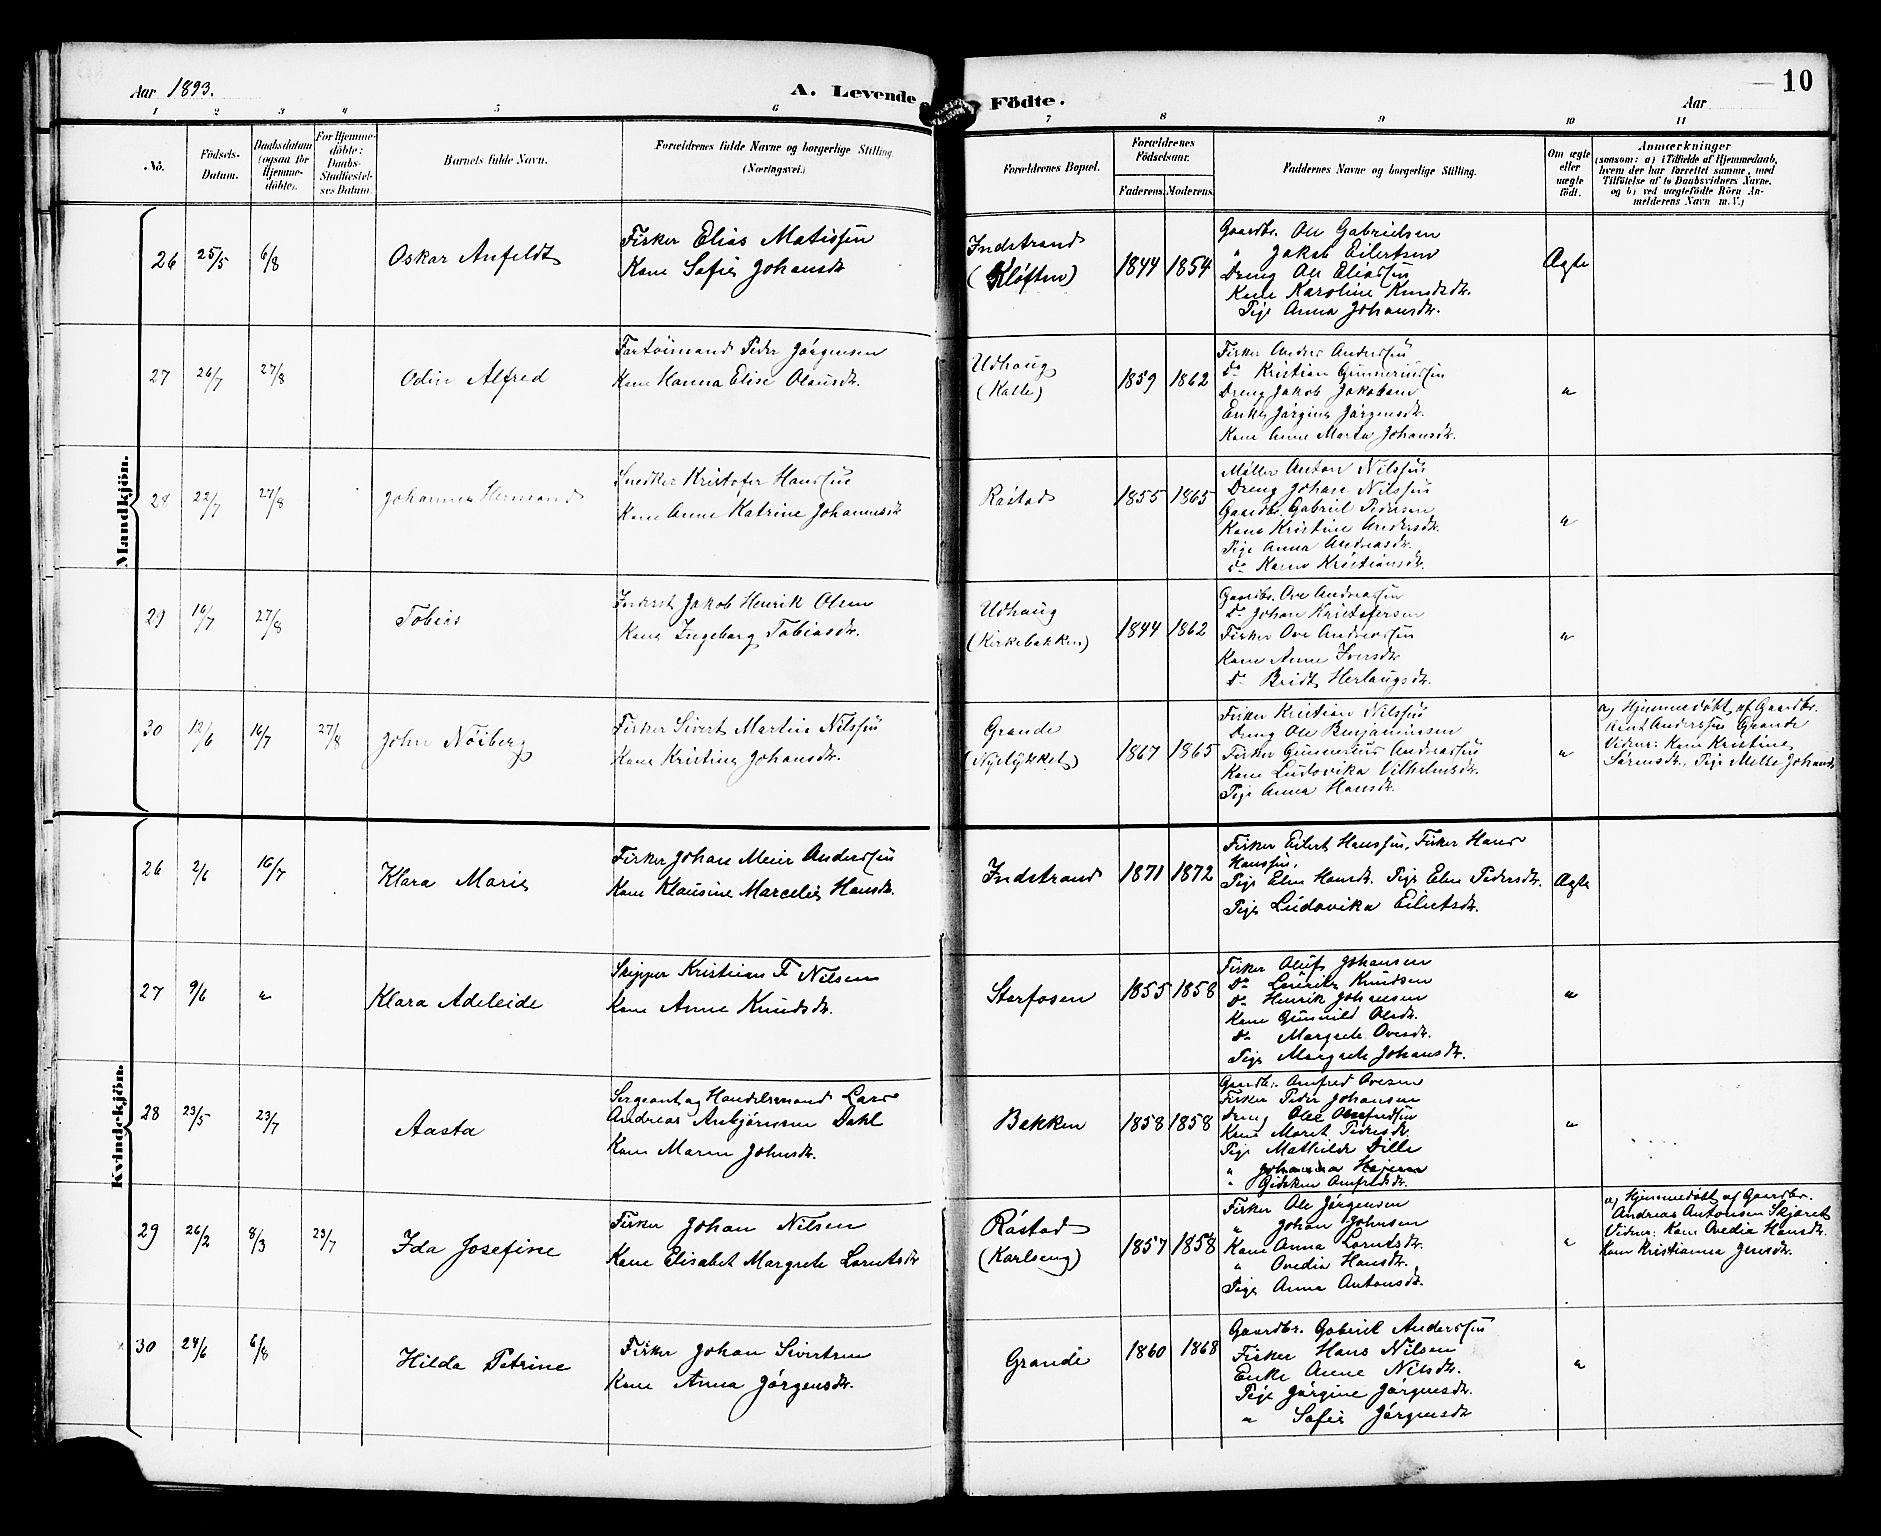 Aar 1893.
A. Levende Födte.
Aar
10
1 2 3 4 5 6 7 8 9 10 11
No.
Födsels-
Datum.
Daabsdatum
(ogsaa for
Hjemme-
döbte).
For Hjemme-
döbte:
Daabs-
Stadfæstel-
ses Datum.
Barnets fulde Navn.
Forældrenes fulde Navne og borgerlige Stilling
(Næringsvei.)
Forældrenes Bopæl.
Forældrenes
Födselsaar.
Faderens. Moderens.
Faddernes Navne og borgerlige Stilling.
Om ægte
eller
uægte
födt.
Anmærkninger
(saasom: a) i Tilfælde af Hjemmedaab,
hvem der har forrettet samme, med
Tilföielse af to Daabsvidners Navne.
og b) ved uægtefödte Börn An-
melderens Navn m. V.)
Mandkjön.
26 25/5 6/8 Oskar Anfeldt
Fisker Elias Matissen
Kone Sofie Johansdr.
Indstrand
(Kløften)
1844 1854
Gaardbr. Ole Gabrielsen
" Jakob Eilertsen
Dreng Ole Eliassen
Kone Karoline Knudsdr.
Pige Anna Johansdr.
Ægte
27 26/7 27/8 Odin Alfred
Fartöimand Peder Jörgensen
Kone Hanna Elise Olausdr.
Udhaug
(Kalle)
1859 1862
Fisker Anders Anderssen
do Kristian Gunneriussen
Dreng Jakob Jakobsen
Enke Jörgine Jörgensdr.
Kone Anne Marta Johansdr.
"
28 22/7 27/8 Johannes Hermand
Snedker Kristofer Hanssen
Kone Anne Katrine Johannesdr.
Råstad
1855 1865
Møller Anton Nilssen
Dreng Johan Nilssen
Gaardbr. Gabriel Pedersen
Kone Kristine Andersdr.
Pige Anna Andreasdr.
do Karen Kristiansdr.
"
29 16/7 27/8 Tobias
Inderst Jakob Henrik Olsen
Kone Ingeborg Tobiasdr.
Udhaug
(Kirkebakken)
1844 1862
Gaardbr. Ove Andreassen
do Johan Kristofersen
Fisker Ove Andreassen
Kone Anne Iversdr.
do Bridt Herlaugsdr.
"
30 12/6 16/7 27/8 John Nöiberg
Fisker Sivert Martin Nilssen
Kone Kristine Johansdr.
Grande
(Nyelykket)
1867 1865
Fisker Kristian Nilssen
Dreng Ole Benjaminsen
Fisker Gunnerius Andreassen
Kone Ludovika Vilhelmsdr.
Pige Anna Hansdr.
"
a) Hjemmedøbt af Gaardbr.
Arnt Anderssen Grande
Vidner: Kone Kristine
Sörensdr., Pige Mette Johansdr.
Kvindekjön.
26 2/6 16/7 Klara Marie
Fisker Johan Meier Anderssen
Kone Klausine Marcelie Hansdr.
Indstrand
1871 1872
Fisker Eilert Hanssen, Fisker Hans
Hanssen,
Pige Elen Hansdr. Pige Elen Pedersdr.
Pige Ludovika Eilertsdr.
Ægte
27 9/6 " Klara Adeleide
Skipper Kristian F Nilsen
Kone Anne Knudsdr.
Storfosen
1855 1858
Fisker Oluf Johansen
do Lauritz Knudsen
do Henrik Johansen
Kone Gunnild Olsdr.
do Margrete Ovesdr.
Pige Margrete Johansdr.
"
28 23/5 23/7 Aasta
Sergeant og Handelsmand Lars
Andreas Arnbjörnsen Dahl
Kone Maren Johnsdr.
Bakken
1858 1858
Gaardbr. Amfred Ovesen
Fisker Peder Johansen
Dreng Ole Amfredsen
Kone Maret Pedersdr.
Pige Mathilde Dille
" Johanna
" Gidsken Amfredsdr.
"
29 26/2 8/3 23/7 Ida Josefine
Fisker Johan Nilsen
Kone Elisabet Margrete Lorntsdr.
Råstad
(Karlseng)
1857 1858
Fisker Ole Jörgensen
" Johan Johnsen
Kone Anna Lorntsdr.
" Ovedia Hansdr.
Pige Anna Antonsdr.
"
a) Hjemmedøbt af Gaardbr.
Andreas Antonsen Skjæret
Vidner: Kone Ovedia Hansdr.
Kone Kristianna Jensdr.
30 24/6 6/8 Hilda Petrine
Fisker Johan Sivertsen
Kone Anna Jörgensdr.
Grande
1860 1868
Gaardbr. Gabriel Anderssen
Fisker Hans Nilsen
Enke Anne Nilsdr.
Pige Jörgine Jörgensdr.
" Sofie Jörgensdr.
"